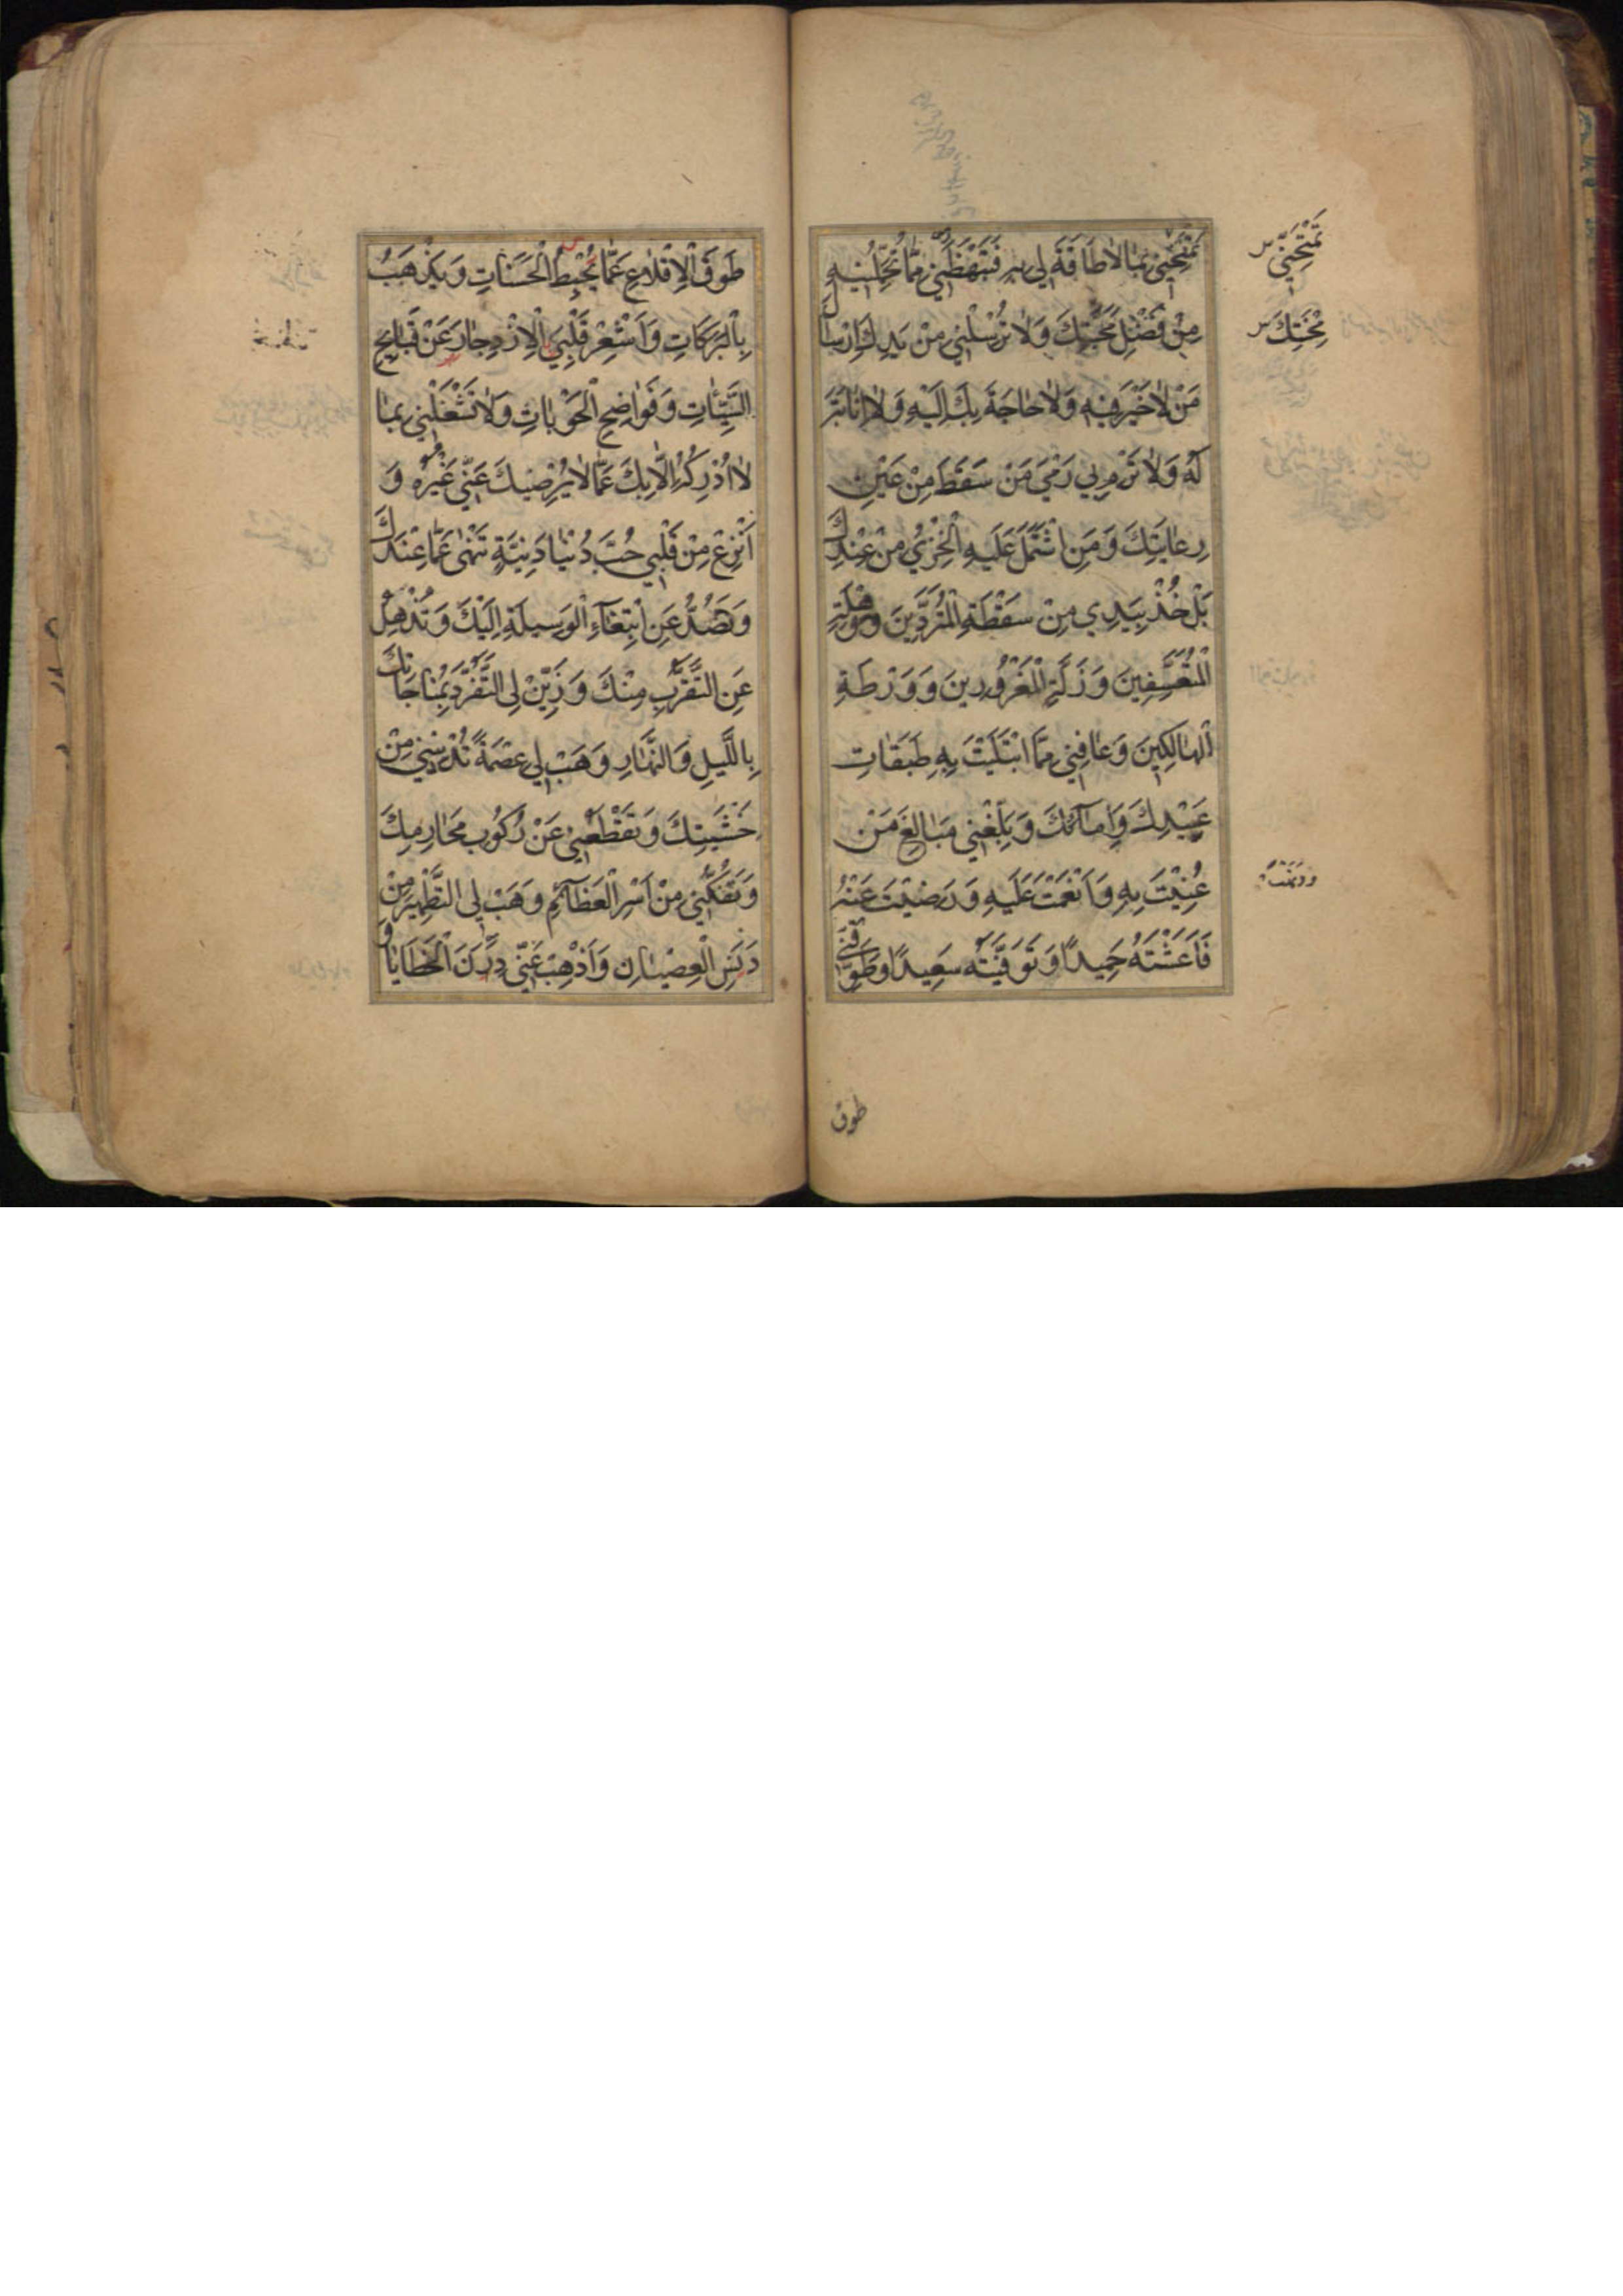 تَمْتَحِنِّي بِمَا لَا طَاقَةَ لِي بِهِ فَتَبْهَظَنِي مِمَّا تُحَمِّلُنِيهِ
مِنْ فَضْلِ مَحَبَّتِكَ وَلَا تُرْسِلْنِي مِنْ يَدِكَ اِرْسَالَ
مَنْ لَا خَيْرَ فِيهِ وَلَا حَاجَةَ بِكَ اِلَيْهِ وَلَا اِنَابَةَ
لَهُ وَلَا تَرْمِ بِي رَمْيَ مَنْ سَقَطَ مِنْ عَيْنِ
رِعَايَتِكَ وَمَنِ اشْتَمَلَ عَلَيْهِ الْخِزْيُ مِنْ عِنْدِكَ
بَلْ خُذْ بِيَدِي مِنْ سَقْطَةِ الْمُتَرَدِّينَ وَوَهْلَةِ
الْمُتَعَسِّفِينَ وَزَلَّةِ الْمَغْرُورِينَ وَوَرْطَةِ
الْهَالِكِينَ وَعَافِنِي مِمَّا ابْتَلَيْتَ بِهِ طَبَقَاتِ
عَبِيدِكَ وَاِمَآئِكَ وَبَلِّغْنِي مَبَالِغَ مَنْ
عُنِيتَ بِهِ وَاَنْعَمْتَ عَلَيْهِ وَرَضِيتَ عَنْهُ
فَاَعَشْتَهُ حَمِيدًا وَتَوَفَّيْتَهُ سَعِيدًا وَطَوِّقْنِي
طوق
تَمْتَحِنِّي
مِحْنَتِكَ
طَوْقَ الْاِقْلَاعِ عَمَّا يُحْبِطُ الْحَسَنَاتِ وَيَذْهَبُ
بِالْبَرَكَاتِ وَاَشْعِرْ قَلْبِيَ الْاِزْدِجَارَ عَنْ قَبَايِحِ
السَّيِّئَاتِ وَفَوَاضِحِ الْحَوْبَاتِ وَلَا تَشْغَلْنِي بِمَا
لَا اُدْرِكُهُ اِلَّا بِكَ عَمَّا لَا يُرْضِيكَ عَنِّي غَيْرُهُ وَ
اَنْزِعْ مِنْ قَلْبِي حُبَّ دُنْيَا دَنِيَّةٍ تَنْهَى عَمَّا عِنْدَكَ
وَتَصُدُّ عَنِ ابْتِغَآءِ الْوَسِيلَةِ اِلَيْكَ وَتُذْهِلُ
عَنِ التَّقَرُّبِ مِنْكَ وَزَيِّنْ لِي التَّفَرُّدَ بِمُنَاجَاتِكَ
بِاللَّيْلِ وَالنَّهَارِ وَهَبْ لِي عِصْمَةً تُدْنِينِي مِنْ
خَشْيَتِكَ وَتَقْطَعُنِي عَنْ رُكُوبِ مَحَارِمِكَ
وَتَفُكُّنِي مِنْ اَسْرِ الْعَظَآئِمِ وَهَبْ لِي التَّطْهِيرَ مِنْ
دَنَسِ الْعِصْيَانِ وَاَذْهِبْ عَنِّي دَرَنَ الْخَطَايَا وَ